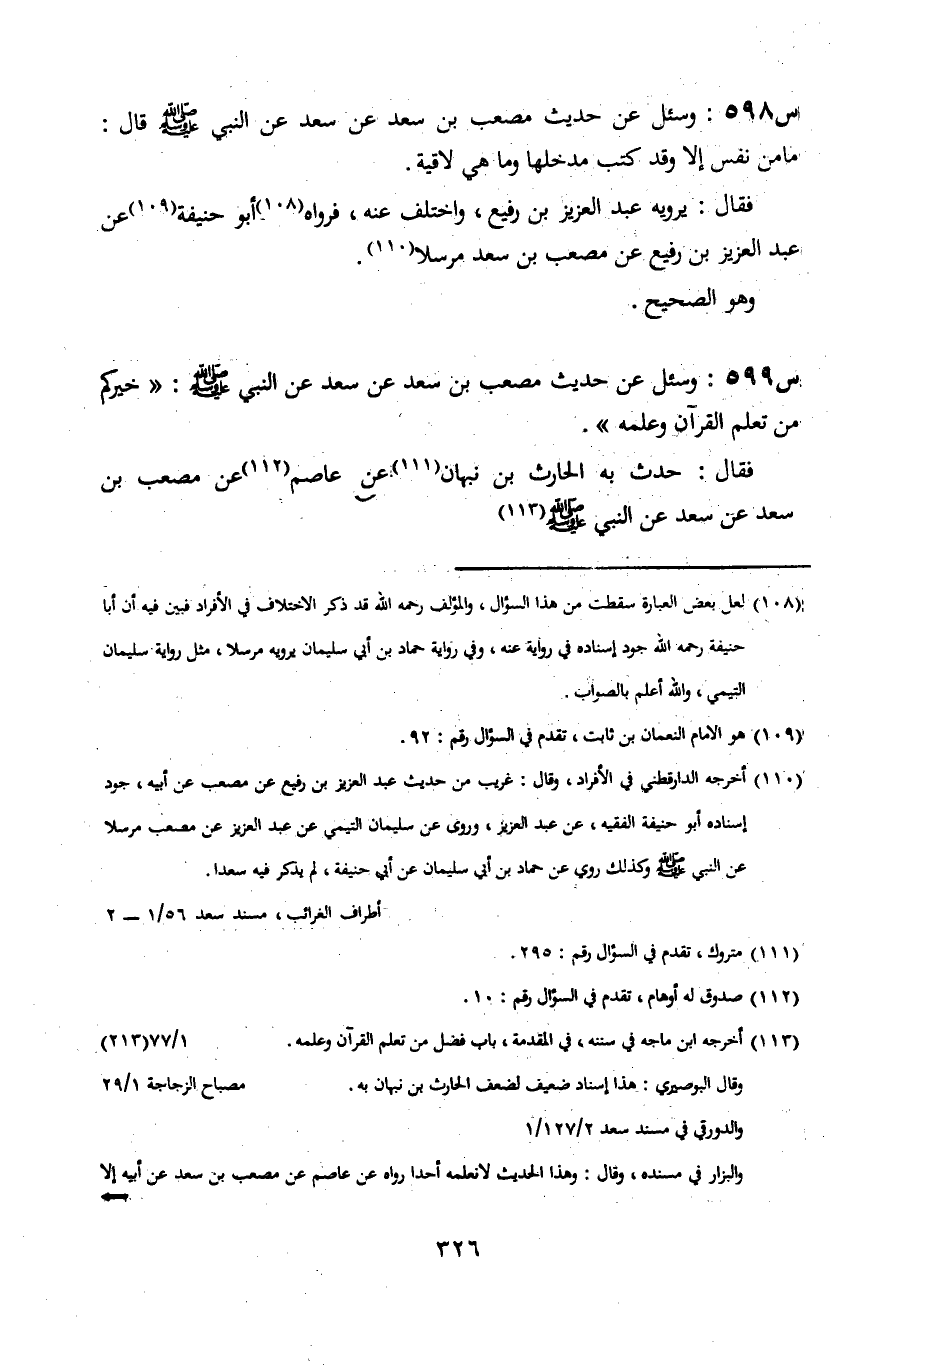 س٥٩٨ : وسئل عن حديث مصعب بن سعد عن سعد عن النبي ﷺ قال :
مامن نفس إلا وقد كتب مدخلها وما هي لاقية .
فقال : يرويه عبد العزيز بن رفيع ، واختلف عنه ، فرواه(١٠٨)أبو حنيفة(١٠٩)عن
عبد العزيز بن رفيع عن مصعب بن سعد مرسلا(١١٠) .
وهو الصحيح .
س٥٩٩ : وسئل عن حديث مصعب بن سعد عن سعد عن النبي ﷺ : « خيركم
من تعلم القرآن وعلمه » .
فقال : حدث به الحارث بن نبهان(١١١)عن عاصم(١١٢)عن مصعب بن
سعد عن سعد عن النبي ﷺ(١١٣)
(١٠٨) لعل بعض العبارة سقطت من هذا السؤال ، والمؤلف رحمه الله قد ذكر الاختلاف في الأفراد فبين فيه أن أبا
حنيفة رحمه الله جود إسناده في رواية عنه ، وفي رواية حماد بن أبي سليمان يرويه مرسلا ، مثل رواية سليمان
التيمي ، والله أعلم بالصواب .
(١٠٩) هو الامام النعمان بن ثابت ، تقدم في السؤال رقم : ٩٢ .
(١١٠) أخرجه الدارقطني في الأفراد ، وقال : غريب من حديث عبد العزيز بن رفيع عن مصعب عن أبيه ، جود
إسناده أبو حنيفة الفقيه ، عن عبد العزيز ، وروى عن سليمان التيمي عن عبد العزيز عن مصعب مرسلا
عن النبي ﷺ وكذلك روي عن حماد بن أبي سليمان عن أبي حنيفة ، لم يذكر فيه سعدا .
أطراف الغرائب ، مسند سعد ١/٥٦ — ٢
(١١١) متروك ، تقدم في السؤال رقم : ٢٩٥ .
(١١٢) صدوق له أوهام ، تقدم في السؤال رقم : ١٠ .
(١١٣) أخرجه ابن ماجه في سننه ، في المقدمة ، باب فضل من تعلم القرآن وعلمه . ٧٧/١(٢١٣)
وقال البوصيري : هذا إسناد ضعيف لضعف الحارث بن نبهان به . مصباح الزجاجة ٢٩/١
والدورقي في مسند سعد ١/١٢٧/٢
والبزار في مسنده ، وقال : وهذا الحديث لانعلمه أحدا رواه عن عاصم عن مصعب بن سعد عن أبيه إلا
٣٢٦